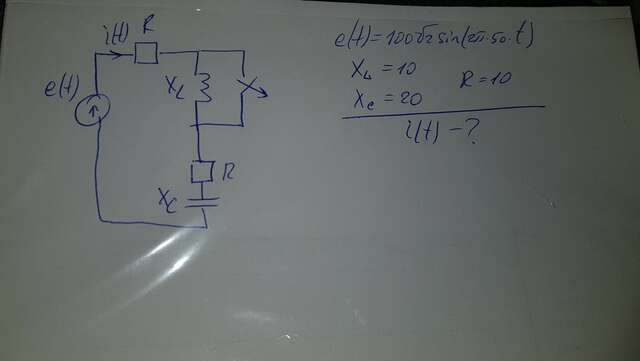 i(t) R
e(t)
X_L
R
X_C
e(t)=100√2 sin(2π·50·t)
X_L = 10 R=10
X_C = 20
i(t) - ?